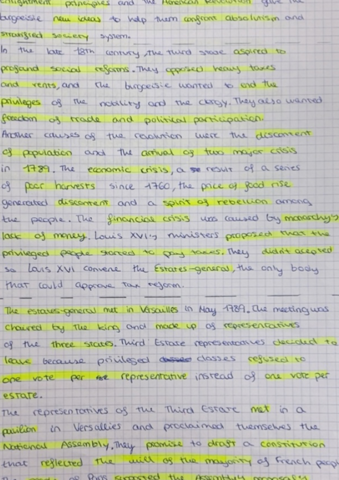 Enlightenment principles and the American Revolution gave the
burgoeisie new ideas to help them confront absolutism and
stratified society system.
In the late 18th century, the third state aspired to
profound social reforms. They opposed heavy taxes
and rents, and the burgoeisie wanted to end the
privileges of the nobility and the clergy. They also wanted
freedom of trade and political participation.
Another causes of the revolution were the discontent
of population and the arrival of two major crisis
in 1789. The economic crisis, a result of a series
of poor harvests since 1760, the price of food rise
generated discontent and a spirit of rebellion among
the people. The financial crisis was caused by monarchy's
lack of money. Louis XVI's ministers proposed that the
privileged people started to pay taxes. They didn't accepted
so Louis XVI convene the Estates-general, the only body
that could approve tax reform.
The estates-general met in Versailles in May 1789. The meeting was
chaired by the king and made up of representatives
of the three states. Third Estate representatives decided to
leave because privileged classes refused to
one vote per representative instead of one vote per
estate.
The representatives of the Third Estate met in a
pavilion in Versailles and proclaimed themselves the
National Assembly. They promise to draft a constitution
that reflected the will of the majority of French people
of Paris supported the Assembly proposals